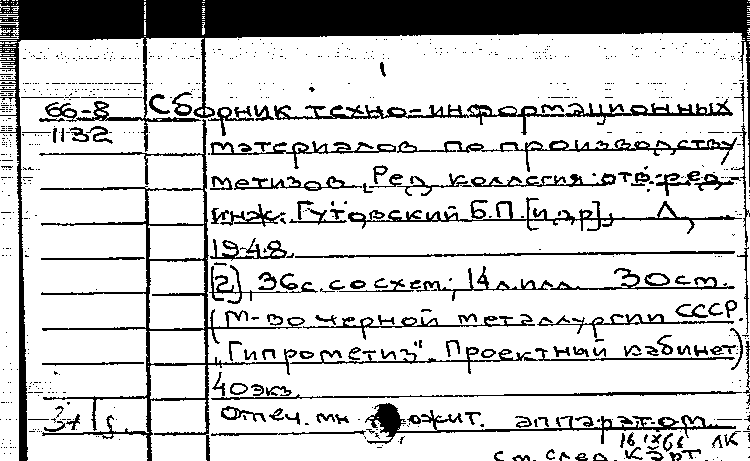 66-8 Сборник техно-информационных
1132 материалов по производству
метизов. Ред. коллегия: отв. ред.
инж. Гутовский Б.П. [и др], Л,
1948.
[2], 36с. со схем; 14л. илл. 30 см.
(М-во черной металлургии СССР.
"Гипрометиз". Проектный кабинет)
40 экз.
Отпеч. мн ожит. аппаратом.
ЛК
см. след. карт.